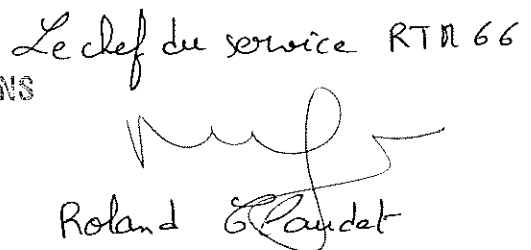 Le chef du service RTM 66
NS
Roland